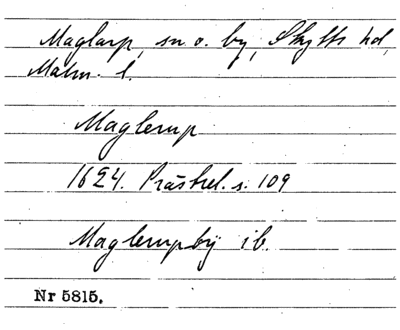 Maglarp, sn o. by, Skytts hd,
Malm. l.
Maglerup
1624. Prästrel. s. 109
Maglerupbÿ ib.
Nr 5815.